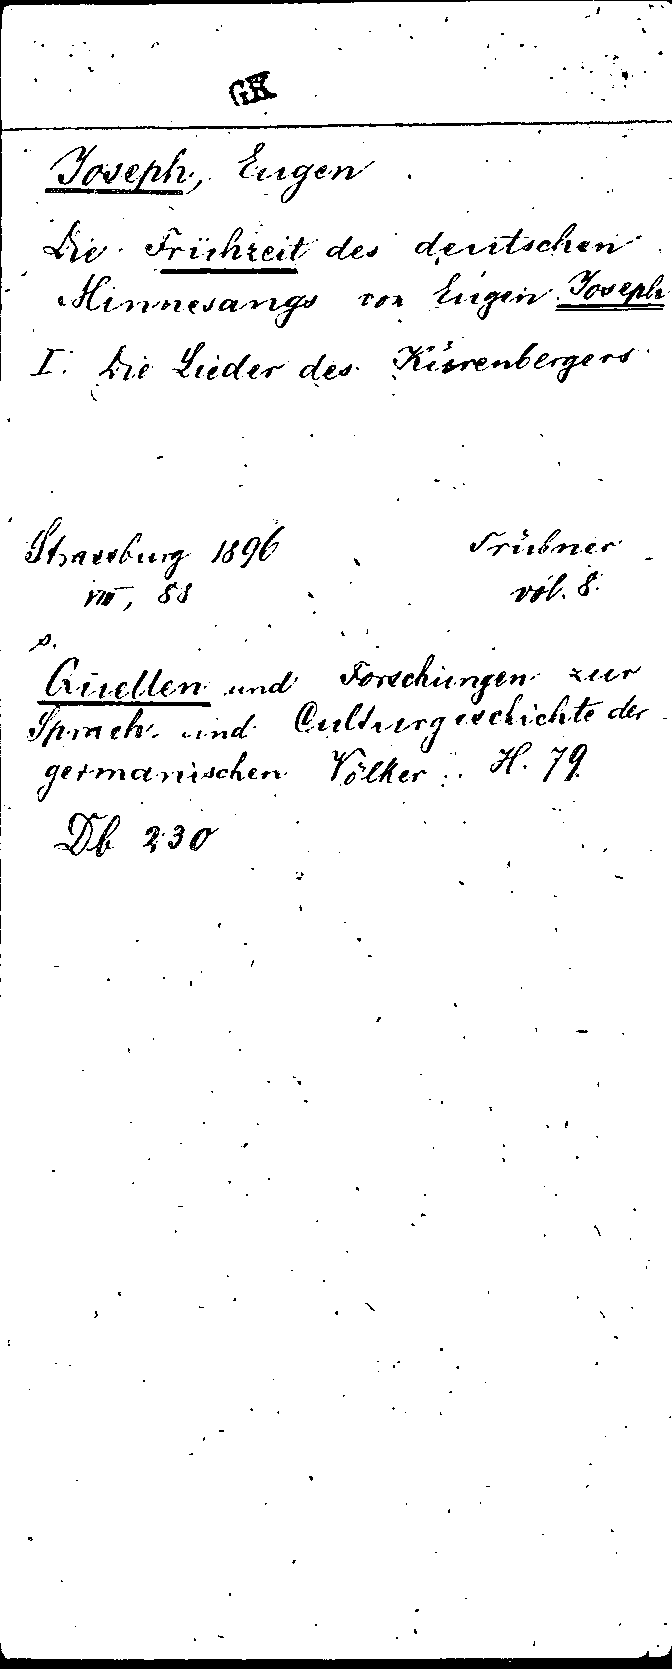 GK
Joseph, Eugen
Die Frühzeit des deutschen
Minnesangs von Eugen Joseph
I. Die Lieder des Kürenbergers
Strassburg 1896 Trübner
VIII, 88 vol. 8.
s.
Quellen und Forschungen zur
Sprach- und Culturgeschichte der
germanischen Völker. H. 79.
Db 230